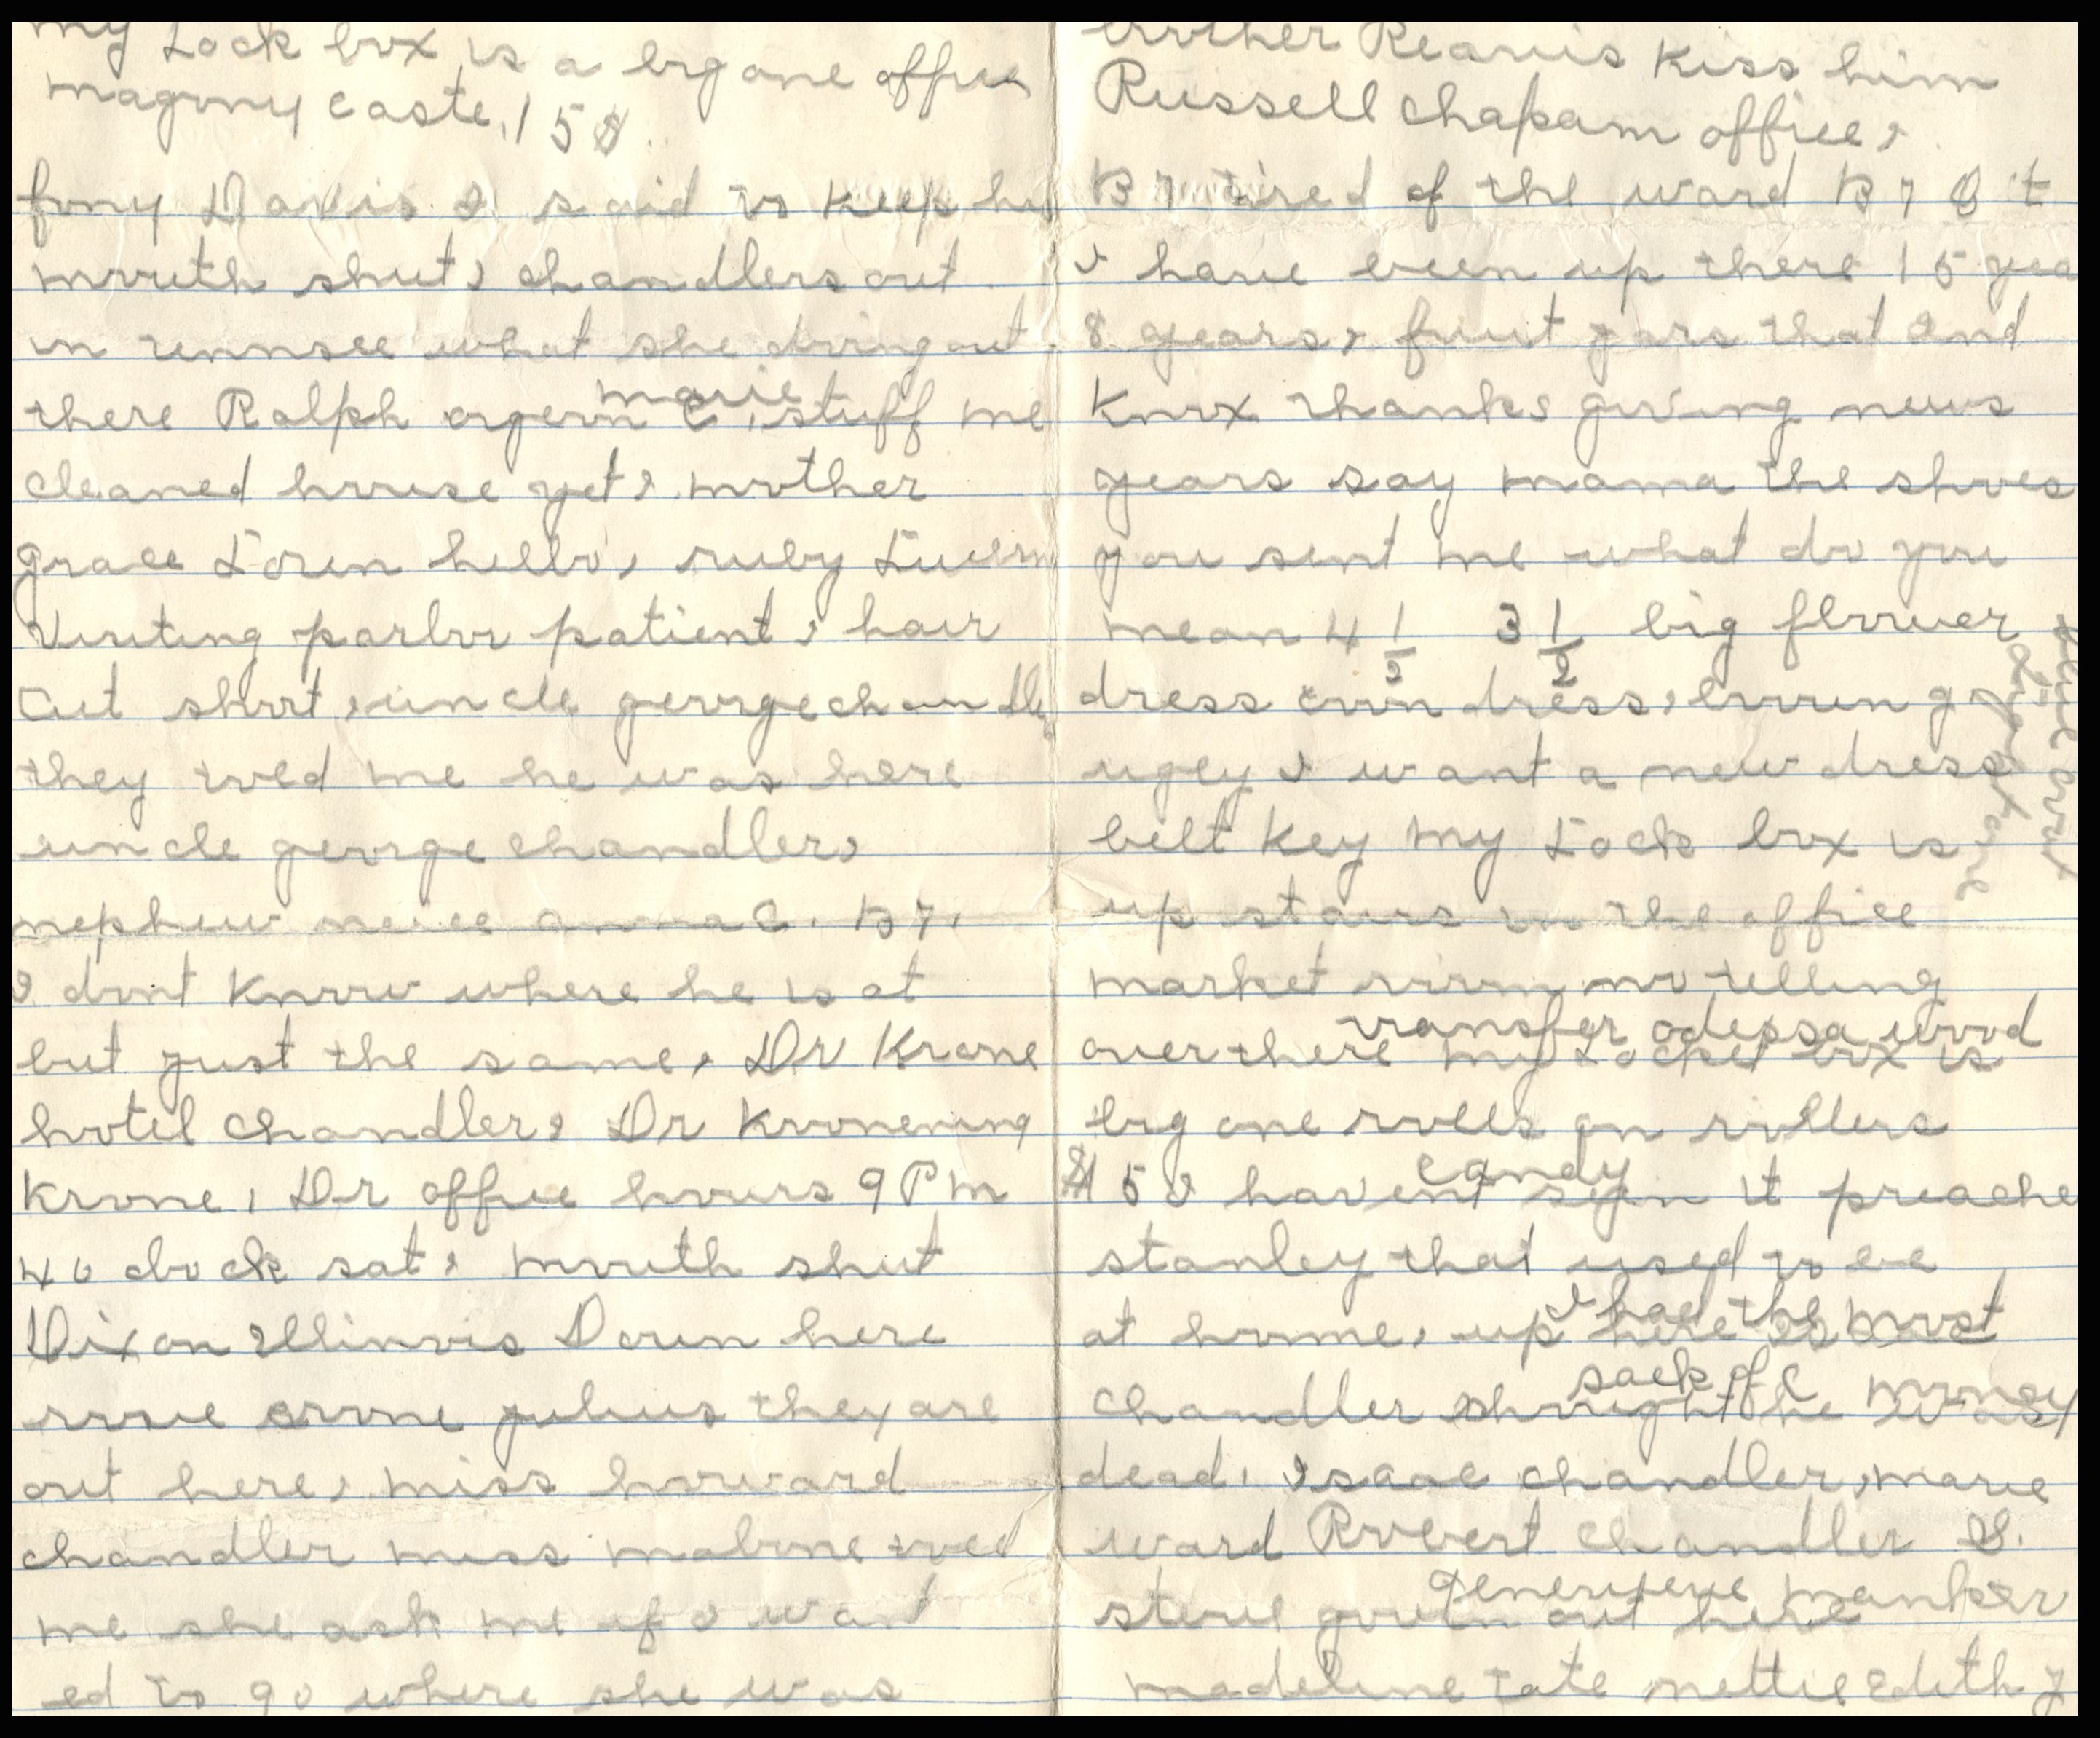 my Lock box is a big one office
magony caste, 15$
fony Davis I said to keep her
mouth shut, chandlers out
in tennsee what she doing out
marie
there Ralph orgern C, stuff me
cleaned house yet, mother
grace Loren hello, ruby
Visiting parlor patient, hair
cut short, uncle george chandler
they told me he was here
uncle george chandler,
nephew neice anna C. B7,
I dont know where he is at
but just the same, Dr Krone
hotel chandler, Dr Kronening
Krone, Dr office hours 9 Pm
4 o clock sat, mouth shut
Dixon Illinois Down here
julius they are
out here, miss howard
chandler miss malone told
me she ask me if I want
ed to go where she was
brother Reavis Kiss him
Russell chapam office,
B7 tired of the ward B7
I have been up there 15 yea
8 years, fruit jars that 2nd
Knox thanks giving news
years say mama the shoes
you sent me what do you
mean 4 1/2 3 1/2 big flower
dress dress,
ugly I want a new dress
belt key my Lock box is
up stairs in the office
market room no telling
transfer odessa wood
over there my Locket box is
big one rolls on rollers
candy
$15 I havent seen it preache
stanley that used to be
I had the most
at home, up here is
sack of C money
chandler thought he was
dead, Isaac chandler, marie
ward Robert chandler S.
genevieve
out here
madeline tate nettie Edith J